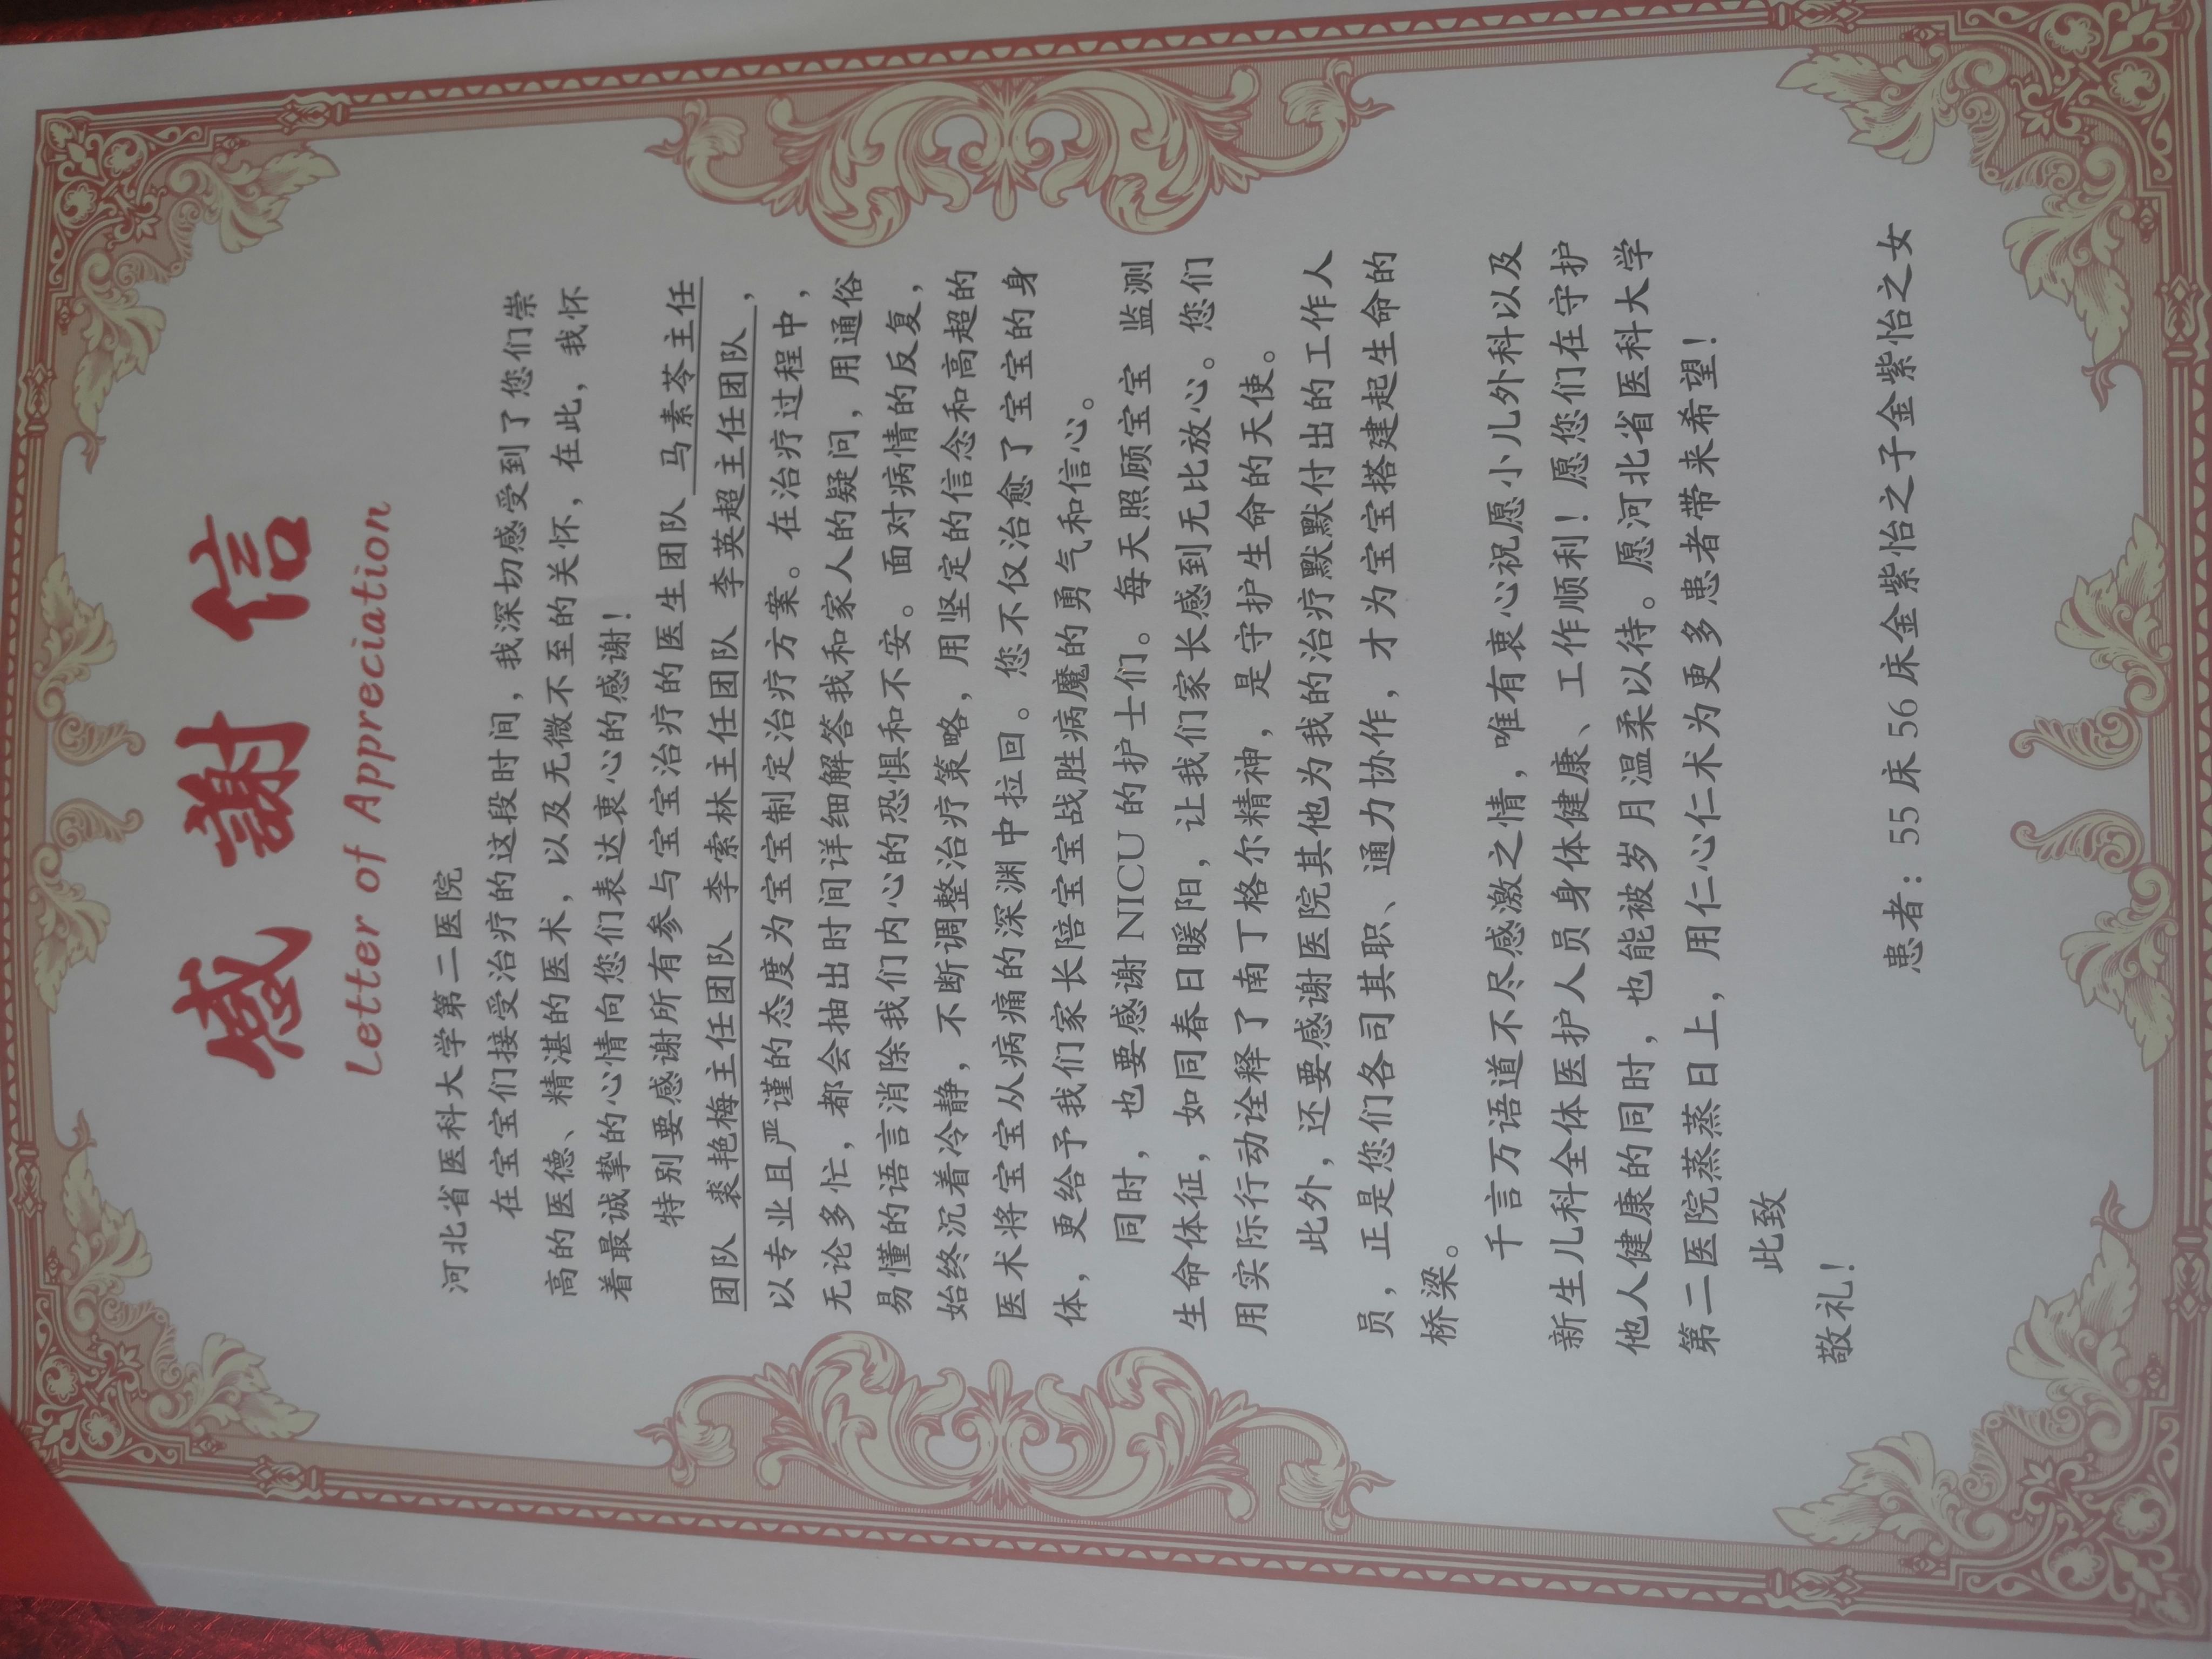 感謝信
Letter of Appreciation
河北省医科大学第二医院
在宝宝们接受治疗的这段时间，我深切感受到了您们崇
高的医德、精湛的医术，以及无微不至的关怀，在此，我怀
着最诚挚的心情向您们表达衷心的感谢！
特别要感谢所有参与宝宝治疗的医生团队 马素苓主任
团队 裘艳梅主任团队 李索林主任团队 李英超主任团队，
以专业且严谨的态度为宝宝制定治疗方案。在治疗过程中，
无论多忙，都会抽出时间详细解答我和家人的疑问，用通俗
易懂的语言消除我们内心的恐惧和不安。面对病情的反复，
始终沉着冷静，不断调整治疗策略，用坚定的信念和高超的
医术将宝宝从病痛的深渊中拉回。您不仅治愈了宝宝的身
体，更给予我们家长陪宝宝战胜病魔的勇气和信心。
同时，也要感谢 NICU 的护士们。每天照顾宝宝 监测
生命体征，如同春日暖阳，让我们家长感到无比放心。您们
用实际行动诠释了南丁格尔精神，是守护生命的天使。
此外，还要感谢医院其他为我的治疗默默付出的工作人
员，正是您们各司其职、通力协作，才为宝宝搭建起生命的
桥梁。
千言万语道不尽感激之情，唯有衷心祝愿小儿外科以及
新生儿科全体医护人员身体健康、工作顺利！愿您们在守护
他人健康的同时，也能被岁月温柔以待。愿河北省医科大学
第二医院蒸蒸日上，用仁心仁术为更多患者带来希望！
此致
敬礼！
患者：55 床 56 床金紫怡之子金紫怡之女